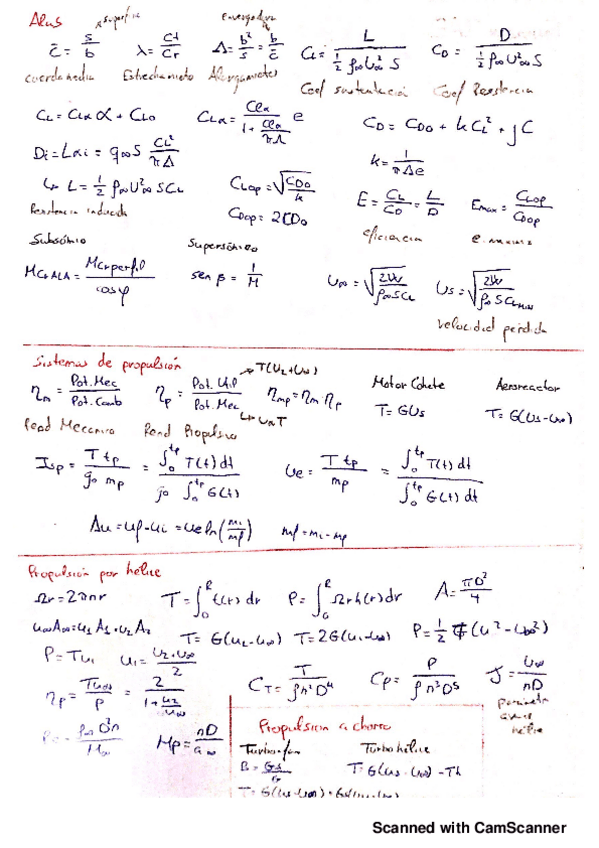 Alas
superficie
Envergadura
c̄ = S/b   λ = Ct/Cr   Λ = b²/S = b/c̄   CL = L / (½ ρ∞ U∞² S)   CD = D / (½ ρ∞ U∞² S)
cuerda media   Estrechamiento   Alargamiento   Coef sustentación   Coef Resistencia
CL = CLα α + CL0   CLα = Clα / (1 + Clα/(πΛ)) e   CD = CD0 + k CL² + jC
Di = Lαi = q∞ S CL²/(πΛ)   k = 1/(πΛe)
↳ L = ½ ρ∞ U∞² S CL   CLop = √(CD0/k)   E = CL/CD = L/D   Emax = CLop/CDop
Resistencia inducida   CDop = 2CD0   eficiencia   e. maxima
Subsónico   Supersónico
MCrALA = MCrperfil / cos φ   sen β = 1/M   U∞ = √(2W / (ρ∞ S CL))   Us = √(2W / (ρ∞ S CLmax))
velocidad perdida
Sistemas de propulsión
ηm = Pot. Mec / Pot. Comb   ηp = Pot. Util / Pot. Mec   ηmp = ηm ηp   Motor Cohete   Aerorreactor
T = GUs   T = G(Us - U∞)
Rend Mecanico   Rend Propulsivo
Isp = T tp / (g0 mp) = ∫₀^tp T(t) dt / (g0 ∫₀^tp G(t))   Ue = T tp / mp = ∫₀^tp T(t) dt / ∫₀^tp G(t) dt
Δu = uf - ui = ue ln(mi/mf)   mf = mi - mp
Propulsión por hélice
Ωr = 2πnr   T = ∫₀^R t(r) dr   P = ∫₀^R Ωr h(r) dr   A = πD²/4
T = G(U2 - U∞)   T = 2G(U1 - U∞)
P = TU1   U1 = (U2 + U∞)/2
CT = T / (ρ n² D⁴)   CP = P / (ρ n³ D⁵)   J = U∞ / nD
ηp = TU∞/P = 2 / (1 + U2/U∞)
hélice
Mp = nD / a∞
Propulsion a chorro
Turbofan   Turbohélice
T = G(Us - U∞) - Th
Scanned with CamScanner